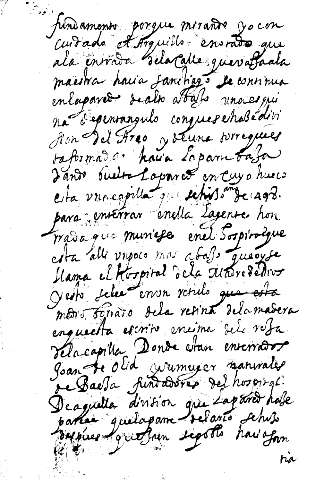 fundamento, porque mirando yo con
cuidado el Arquillo enorado que
a la entrada de la Calle que va a la
maestra hacia Santiago se continua
en la pared de alto a baxo una esqui
na de que se haze divi
sion del Arco y de una torre que es
ta formada hacia la parte baxa
dando buelta la pared en cuyo hueco
esta una capilla que se hizo de 498.
para enterrar en ella la gente hon
rrada que muriese en el hospital que
esta alli un poco mas abaxo que oy se
llama el Hospital de la Madre de Dios
y esto se lee en un retulo que esta
medio borrado de la resina de la madera
en que esta escrito encima de la rexa
de la capilla Donde estan enterrados
Joan de Olid y su muger naturales
de Baeça fundadores del hospital
De aquella division que la pared haze
parece que la parte del arco se hizo
despues que se poblo hacia San
tia